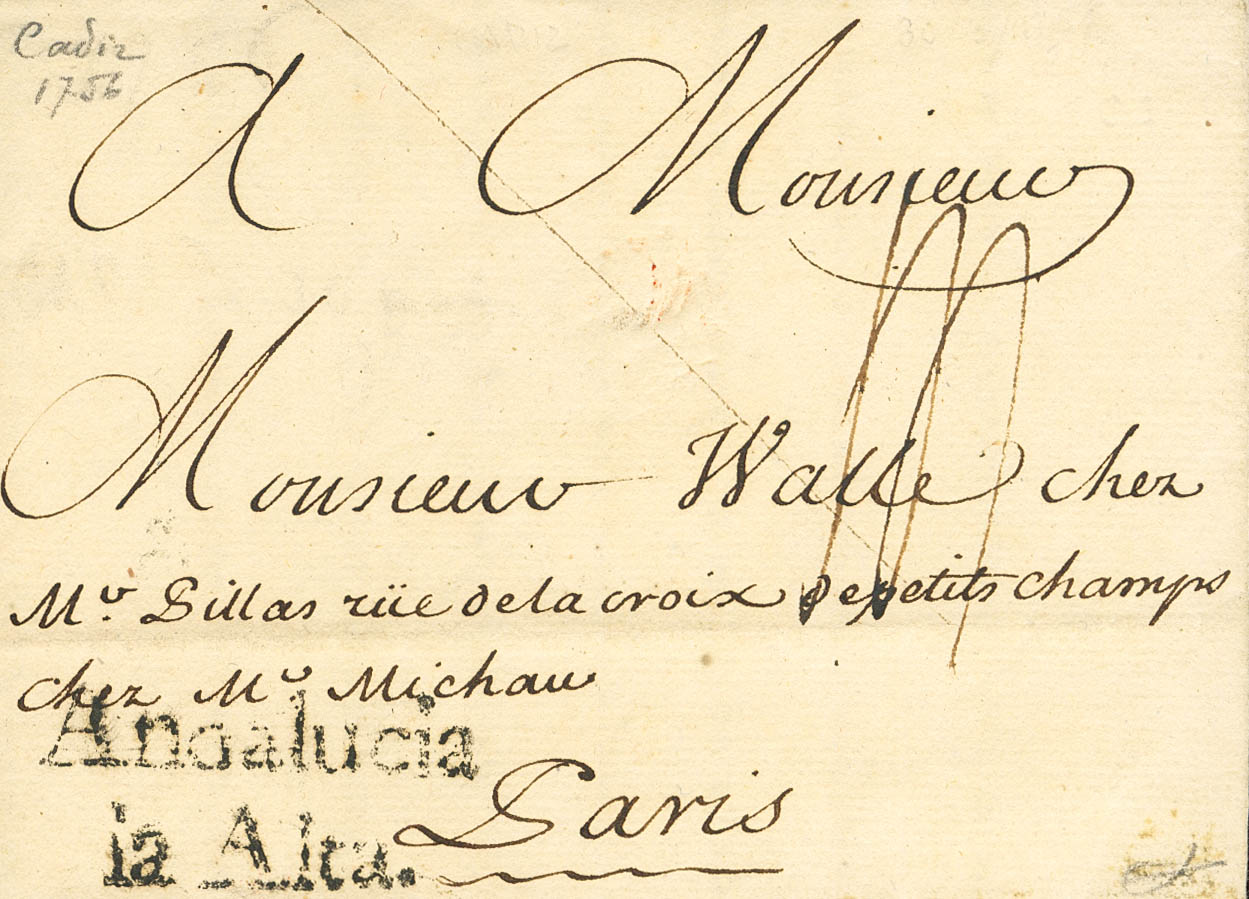 Cadiz
1756
A Monsieur
Monsieur Walle chez
Mr. Pillas rüe de la croix de petits champs
chez Mr Michau
Andalucia
la Alta.
Paris